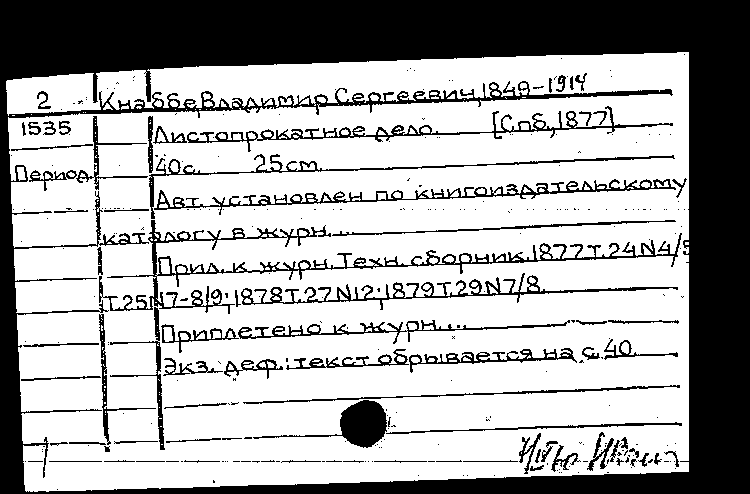 2 Кнаббе, Владимир Сергеевич, 1849-1914
1535 Листопрокатное дело. [Спб., 1877].
Период. 40с. 25см.
Авт. установлен по книгоиздательскому
каталогу в журн....
Прил. к журн. Техн. сборник. 1877 Т.24 N4/5
Т.25 N7-8/9; 1878 Т.27 N12; 1879 Т.29 N7/8.
Приплетено к журн....
Экз. деф.: текст обрывается на с. 40.